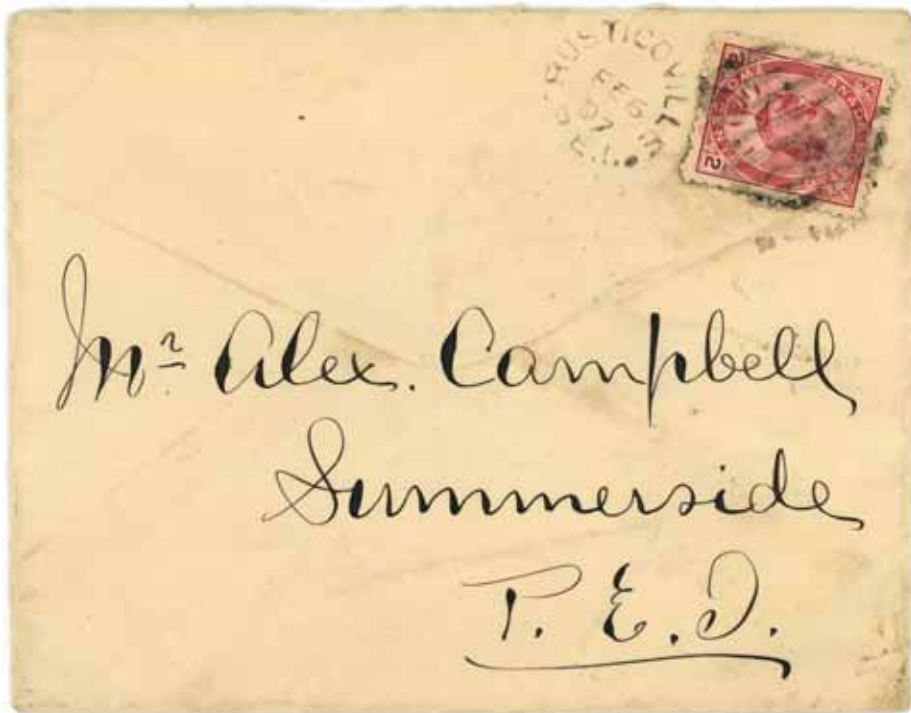 RUSTICOVILLE
FE 6
07
P.E.I.
2 2
Mr Alex. Campbell
Summerside
P. E. I.